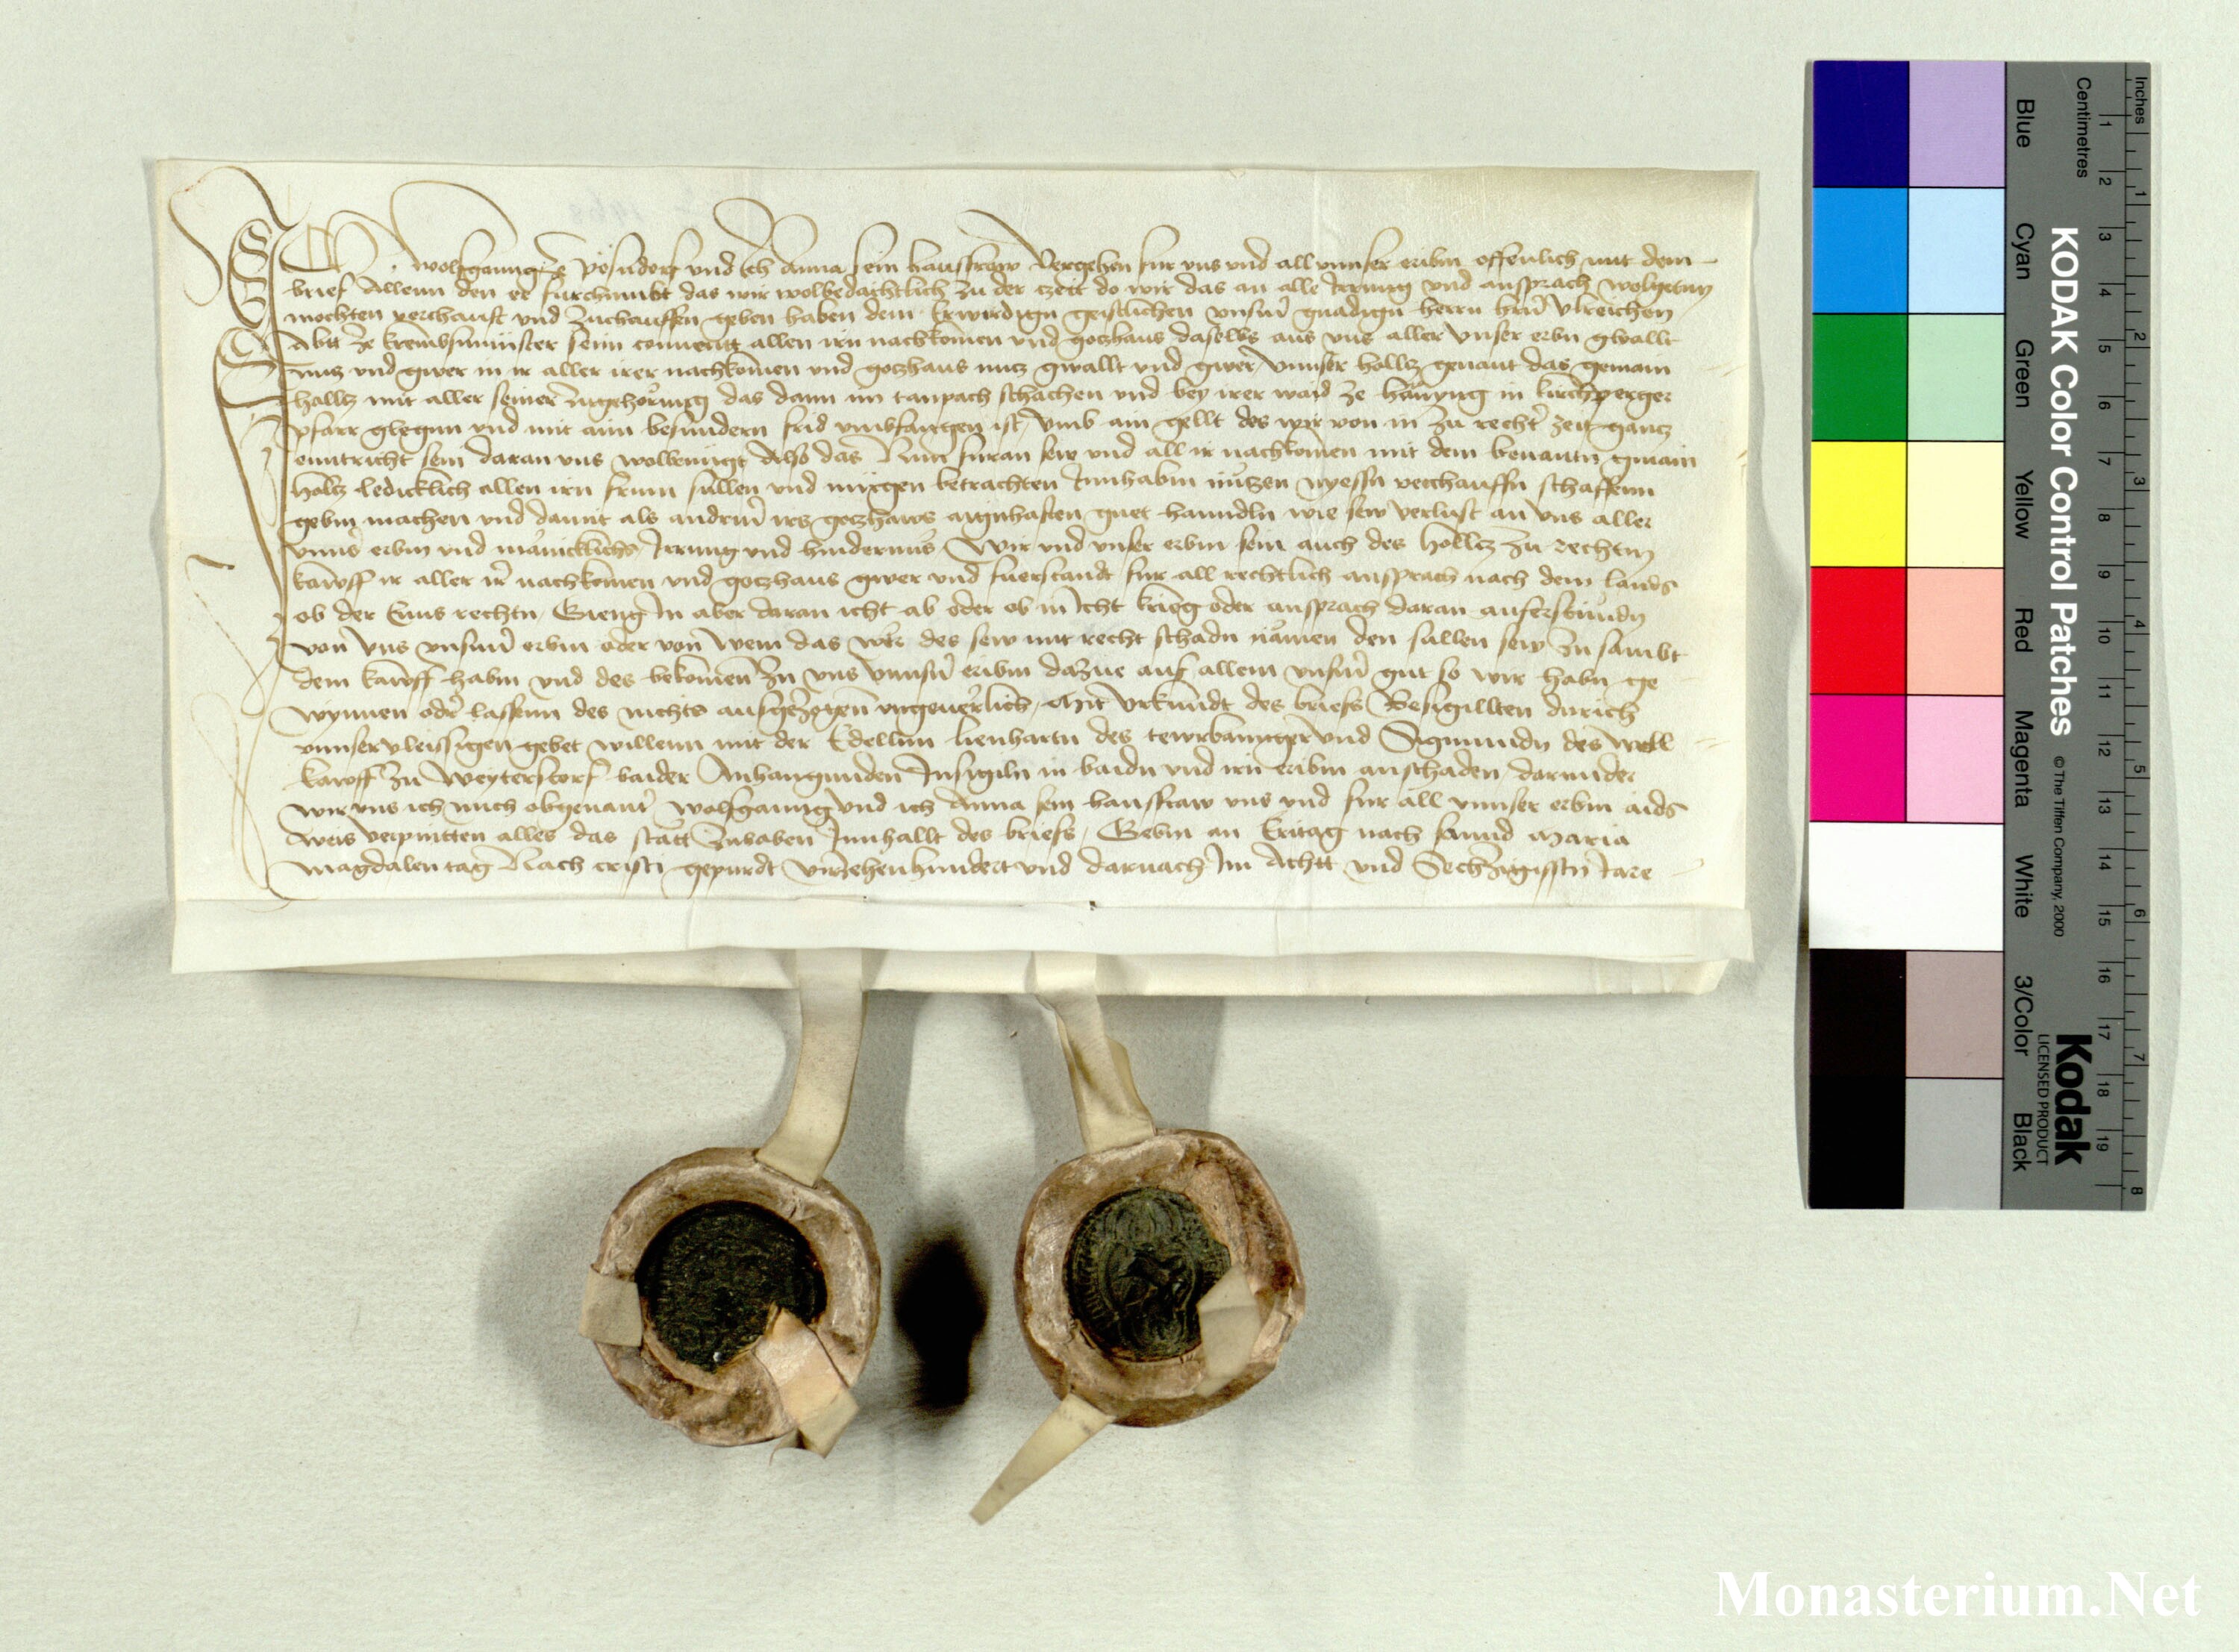 Ich wolfganng ze Pösndorf vnd Ich Anna sein hausfraw Vergehen für vns vnd all vnnser eribm offenlich mit dem
brief Allenn den er fürchümbt das wir wolbedächtlich zu der czeit do wir das an alle Irrung vnd ansprach wolgetun
mochten verchaufft vnd zuchauffen geben haben dem Erwirdign geistlichen vnsm gnädign herrn hrn Vlreichen
Abbt ze krembsmünster seim conuentt allen irn nachkömen vnd gotzhaus daselbs aus vns aller vnser erbn gwallt
nutz vnd gwer in ir aller irer nachkömen vnd gotzhaus nutz gwallt vnd gwer vnnser holltz genant das gemain
holltz mit aller seiner zugehörung das dann im tanpach schachen vnd bey irer waid ze in kirchperger
pfarr glegnn vnd mit aim besundern frid vmbfangen ist vmb ain gellt des wir von in zu rechter zeit gantz
enntricht sein daran vns wolbenügt Also das Nun füran sew vnd all ir nachkömen mit dem benantn gmain
holtz ledicklich allen irn frum süllen vnd mügen betrachten Innhabm nützen nyessn verchauffn schaffenn
gebm machen vnd damit als andrm irs gotzhaws aignhaften guet hanndln wie sew verlust an vns aller
vnns erbm vnd mänicklichs Irrung vnd hindernus Wir vnd vnser erbm sein auch des holltz zu rechtm
kawff ir aller ir nachkömen vnd gotzhaus gwer vnd fuerstandt für all rechtlich ansprach nach dem lannds
ob der Enns rechtn Gieng in aber daran icht ab oder ob in Icht krieg oder ansprach daran auferstündn
von vns vnsm erbm oder von wem das wär des sew mit recht schadn nämen den süllen sew zu sambt
dem kawff habm vnd des bekömen zu vns vnnsn eribm dazue auf allem vnsm gut so wir habn ge
wynnen oder lassenn des nichts ausgezogen vngeuerlich Mit vrkundt des briefs Besigillten durich
vnnser vleissigen gebet willenn mit der Edellnn lienhartn des vnd Sigmundn des
kawff zu Weyterstorf baider Anhangunden Insigiln in baidn vnd irn eribm anschaden darunder
wir vns ich mich obgenantr wolfganng vnd ich Anna sein hausfraw vns vnd für all vnnser erbm aids
weis verpintten alles das statt zuhaben Innhallt des briefs Gebm an Eritag nach sannd Maria
magdalen tag Nach cristi gepurdt vierzehenhundert vnd darnach Im Achtt vnd Sechzigisstn Jare
Inches
Centimetres
KODAK Color Control Patches © The Tiffen Company, 2000
Kodak
LICENSED PRODUCT
Blue Cyan Green Yellow Red Magenta White 3/Color Black
1 2 3 4 5 6 7 8 9 10 11 12 13 14 15 16 17 18 19
1 2 3 4 5 6 7 8
Monasterium.Net